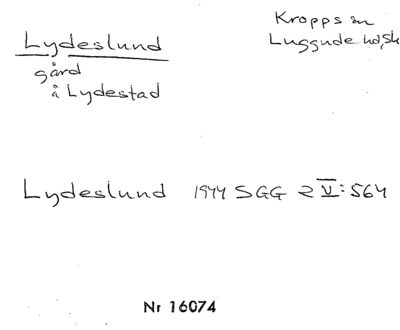 Lydeslund
gård
å Lydestad
Kropps sn
Luggude hd, Sk
Lydeslund 1944 SGG 2 V:564
Nr 16074